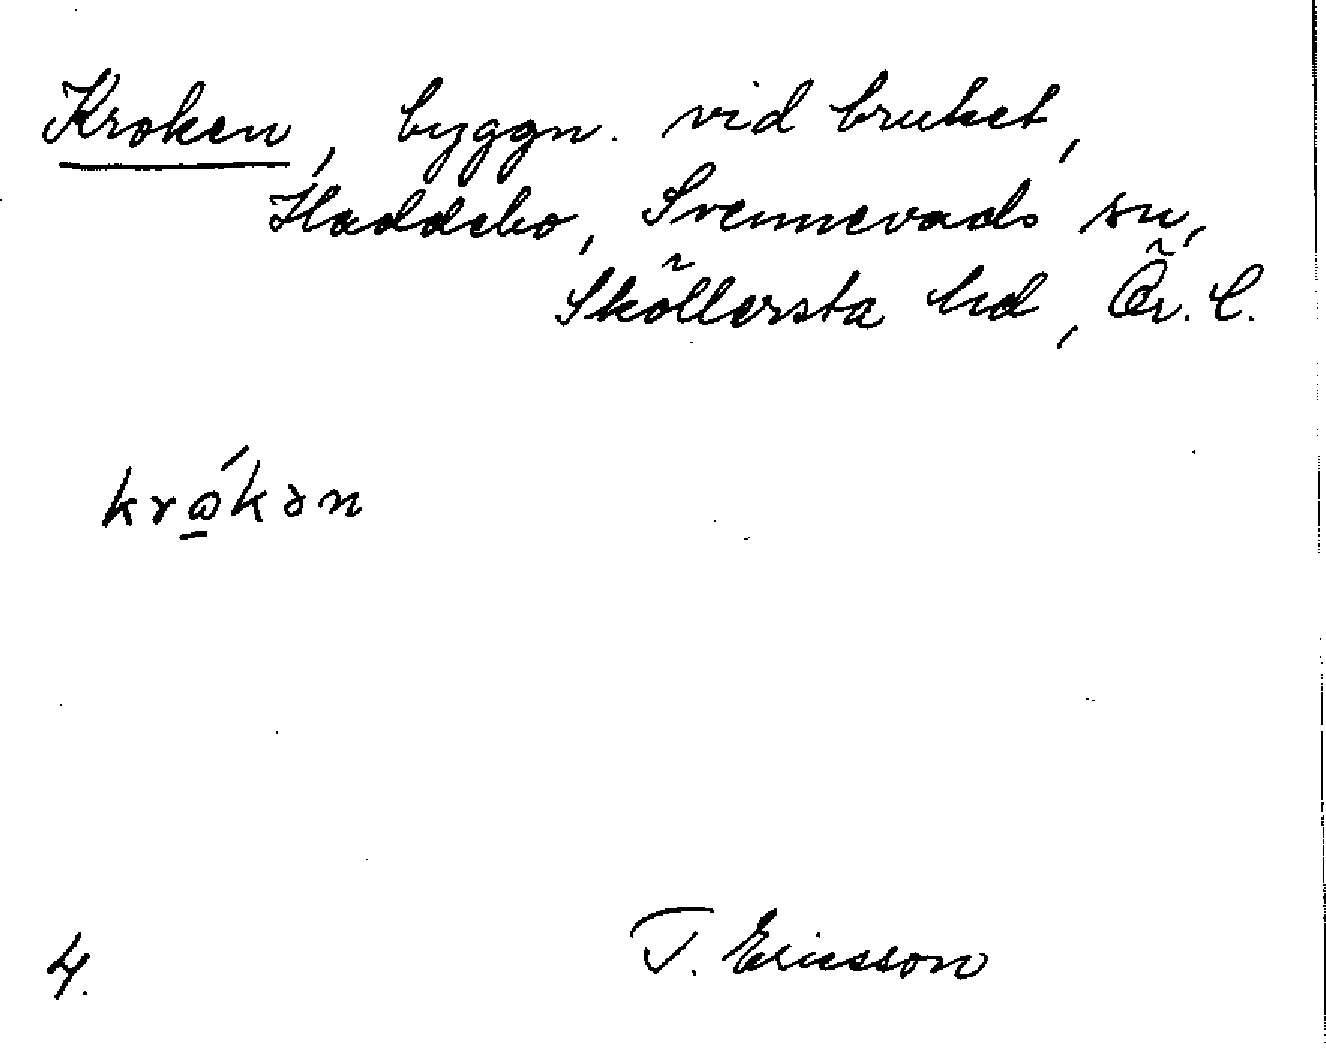 Kroken, byggn. vid bruket,
Haddebo, Svennevads sn,
Sköllersta hd, Ör. l.
krώ̲kən
4.
T. Ericsson